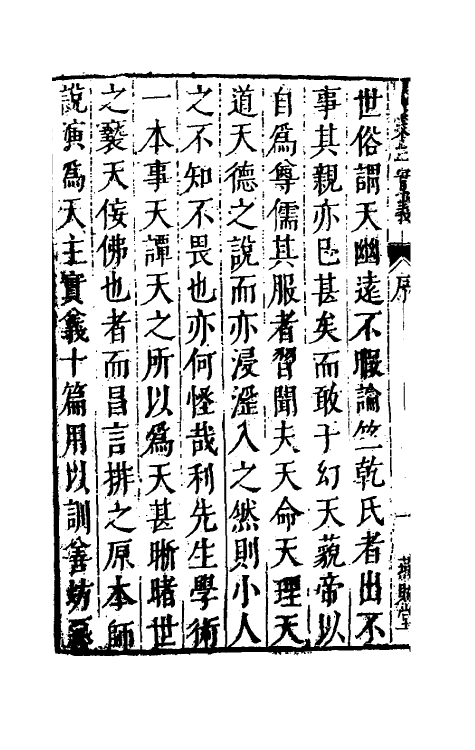 天主實義
序
一
燕貽堂
世俗謂天幽遠不暇論竺乾氏者出不
事其親亦已甚矣而敢于幻天藐帝以
自為尊儒其服者習聞夫天命天理天
道天德之說而亦浸淫入之然則小人
之不知不畏也亦何怪哉利先生學術
一本事天譚天之所以為天甚晰睹世
之褻天佞佛也者而昌言排之原本師
說演為天主實義十篇用以訓善坊惡